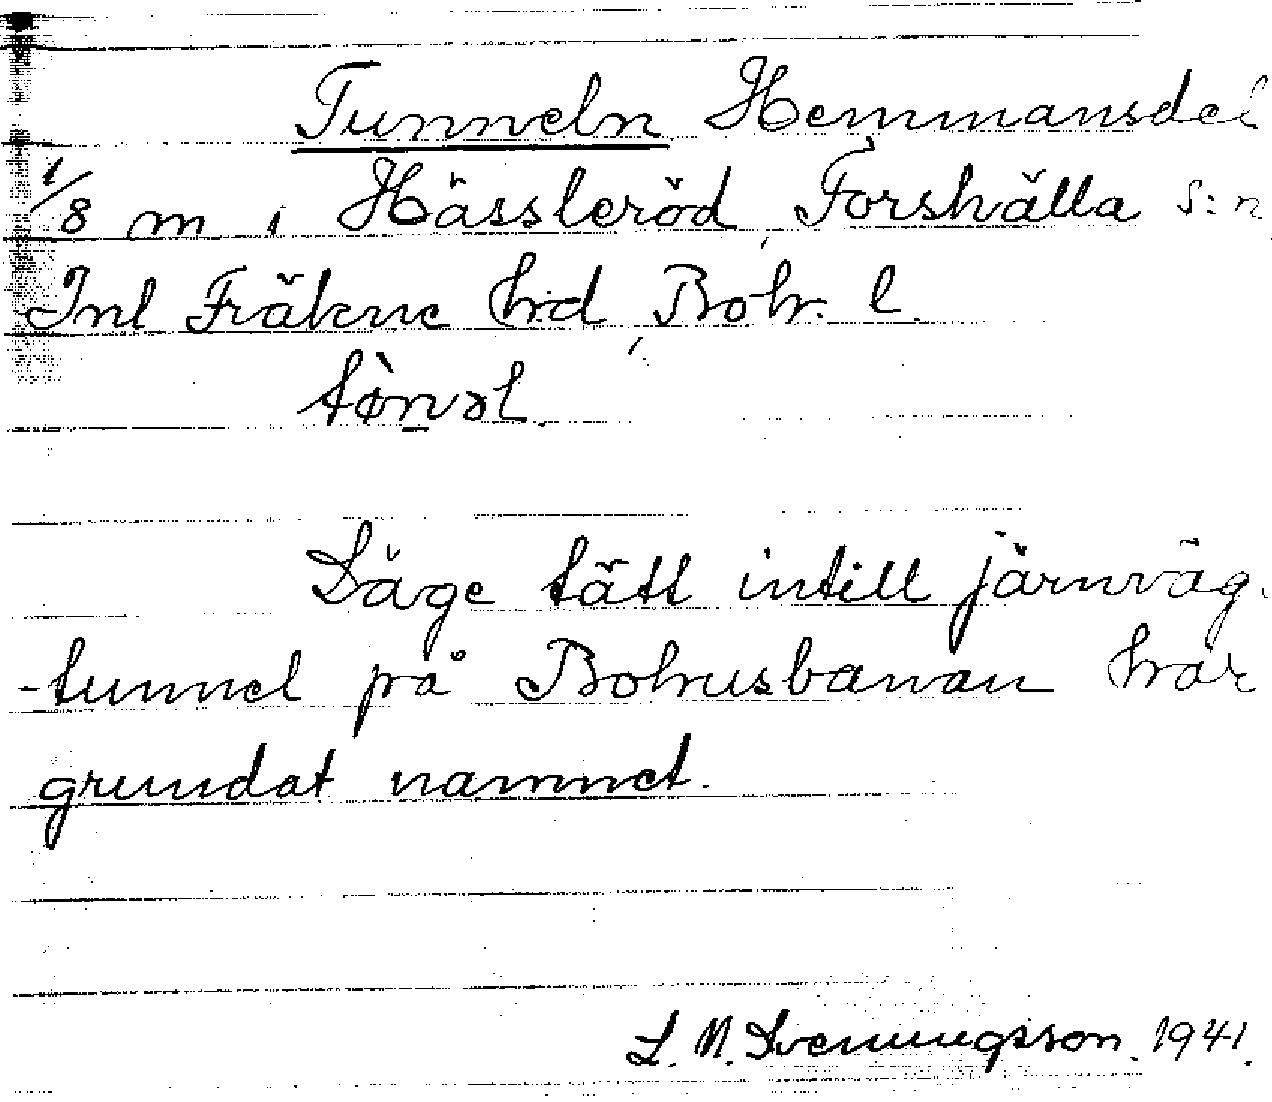 Tunneln Hemmansdel
1/8 m i Hässleröd, Forshälla s:n
Inl Fräkne hrd, Bohr. l.
tònəl.
Läge tätt intill järnväg.
-tunnel på Bohusbanan har
grundat namnet.
L. M. Svenningsson. 1941.